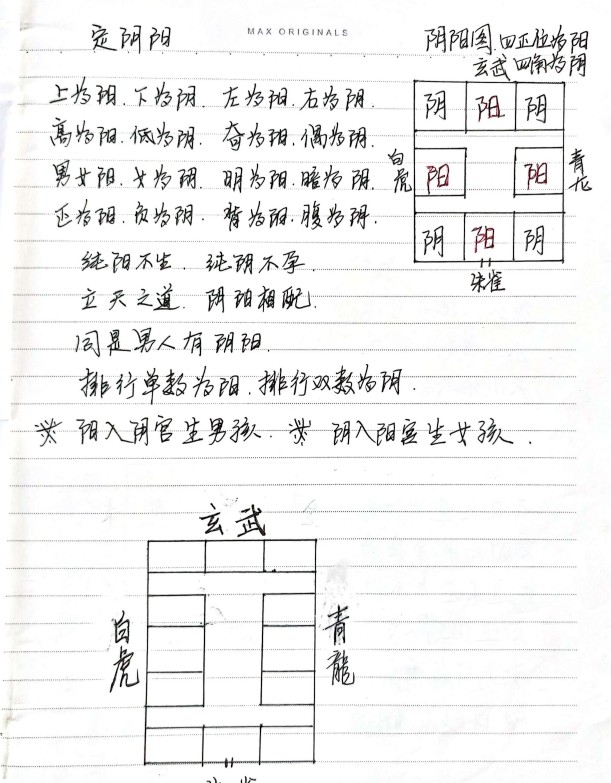 定阴阳
MAX ORIGINALS
阴阳图.四正位为阳
玄武 四角为阴
上为阳.下为阴.左为阳.右为阴.
高为阳.低为阴.奇为阳.偶为阴.
男女阳.女为阴.明为阳.暗为阴.
正为阳.负为阴.背为阳.腹为阴.
纯阳不生.纯阴不孕.
立天之道.阴阳相配.
同是男人有阴阳.
排行单数为阳.排行双数为阴.
阳入阴宫生男孩.阴入阳宫生女孩.
阴 阳 阴
白虎 阳 阳 青龙
阴 阳 阴
朱雀
玄武
白虎
青龍